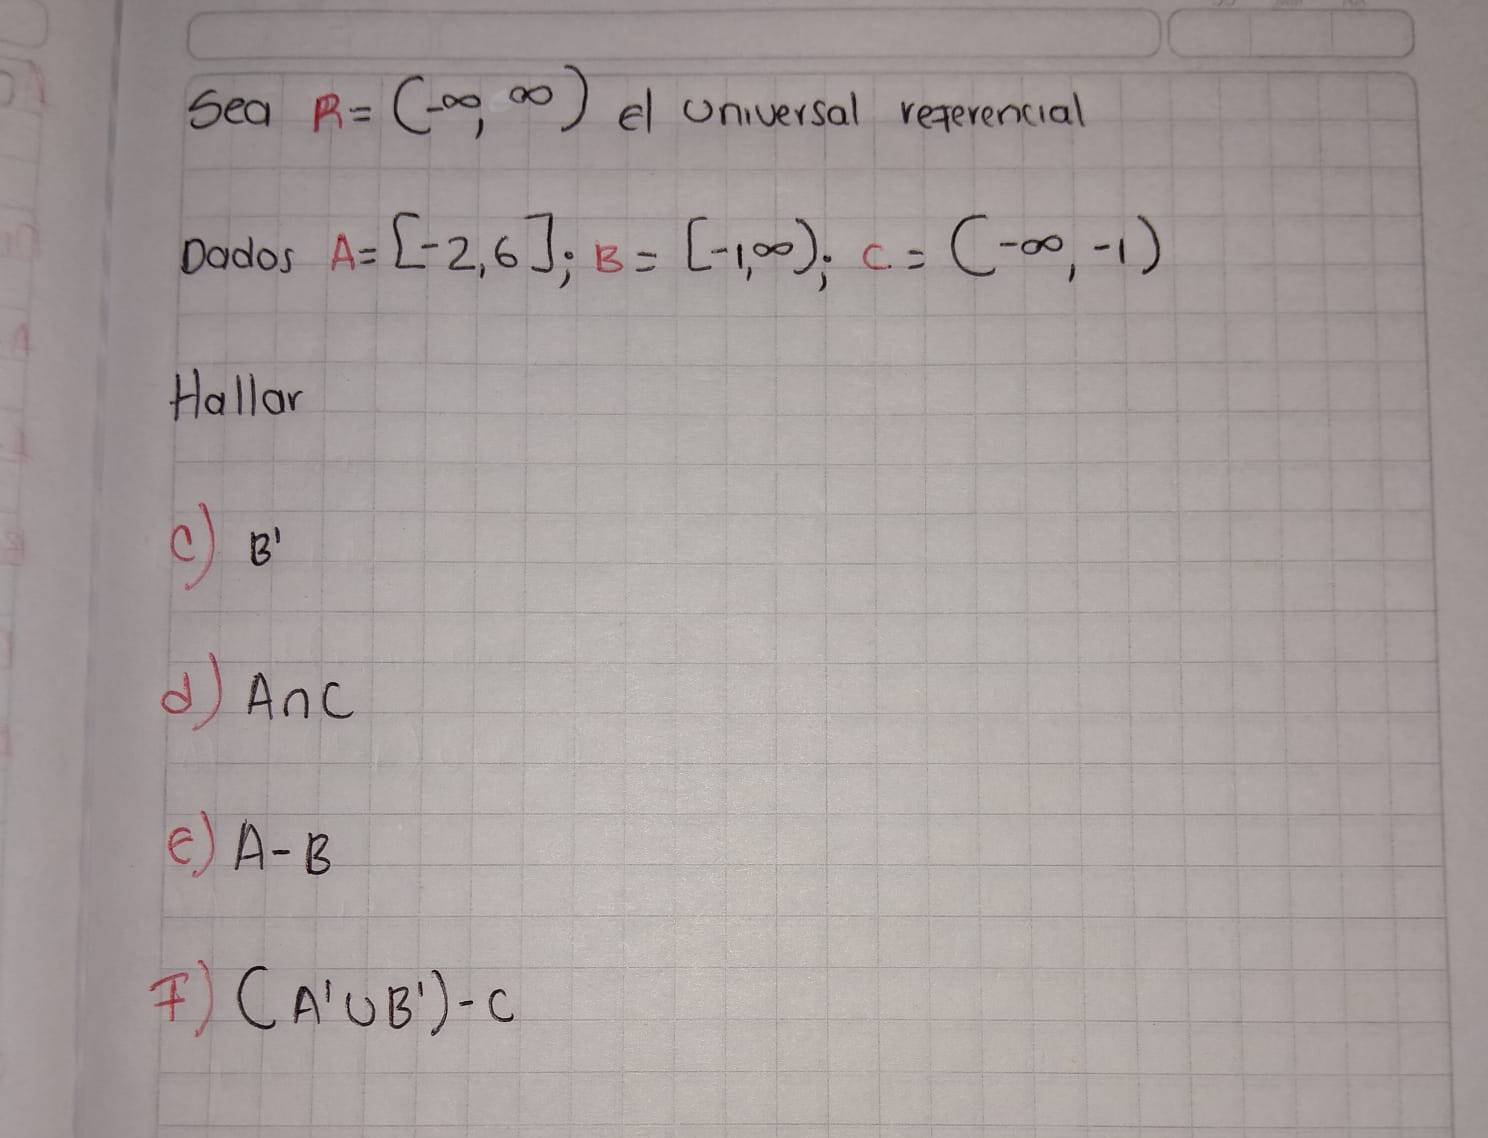 Sea R = (-∞, ∞) el universal referencial
Dados A = [-2, 6]; B = [-1, ∞); C = (-∞, -1)
Hallar
c) B'
d) A∩C
e) A-B
f) (A'∪B')-C